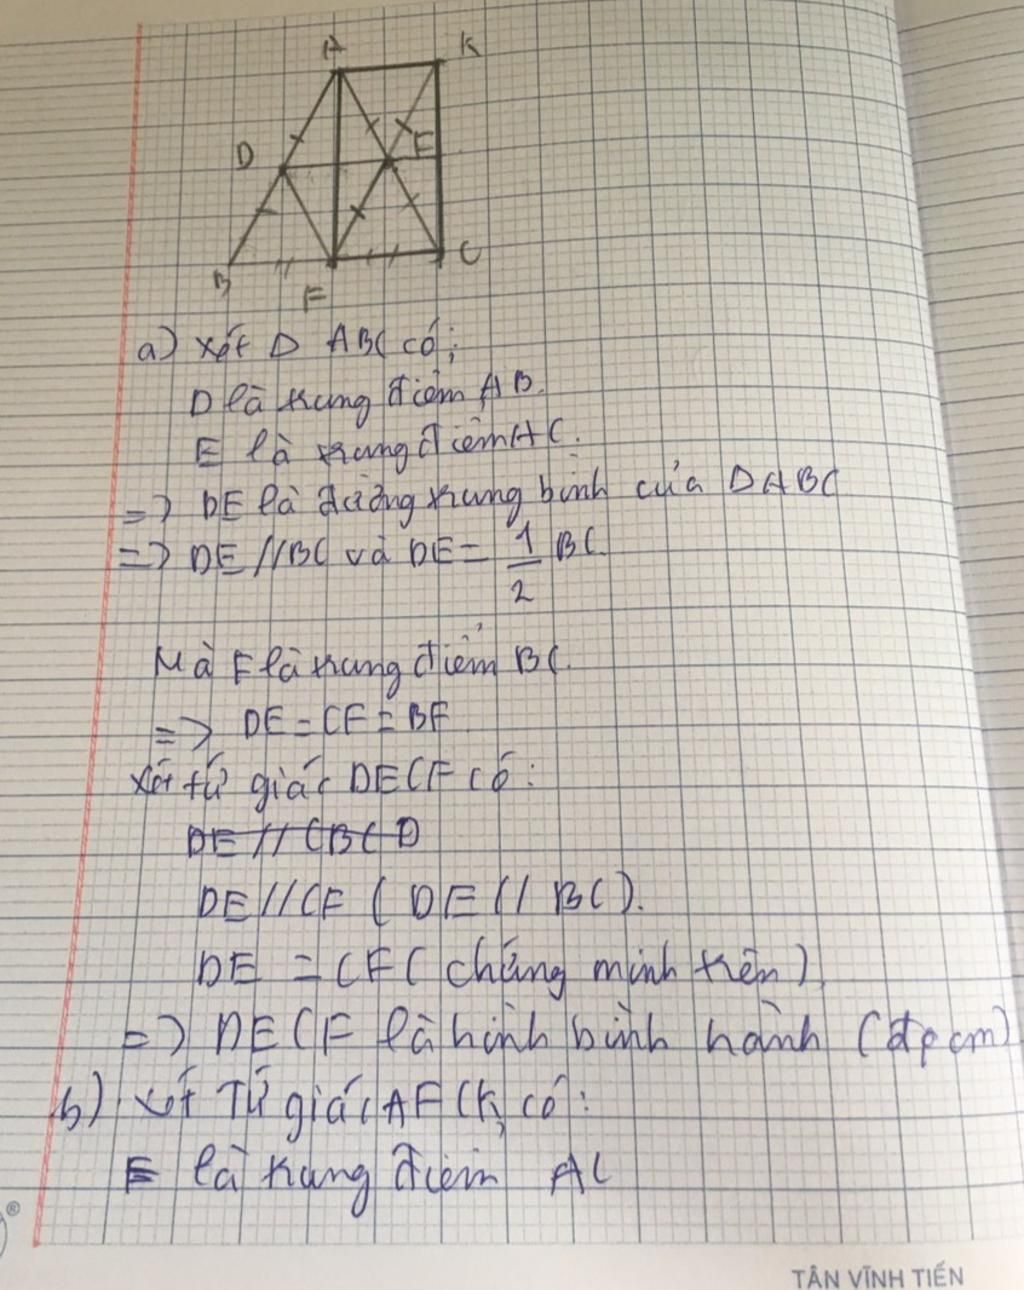 A K
D E
B F C
a) Xét Δ ABC có:
D là trung điểm AB.
E là trung điểm AC.
=> DE là đường trung bình của ΔABC
=> DE//BC và DE = 1/2 BC.
Mà F là trung điểm BC.
=> DE = CF = BF
Xét tứ giác DECF có:
DE//CF (DE//BC).
DE = CF (chứng minh trên)
=> DECF là hình bình hành (đpcm)
b) Xét Tứ giác AFCK có:
E là trung điểm AC
®
TÂN VĨNH TIẾN